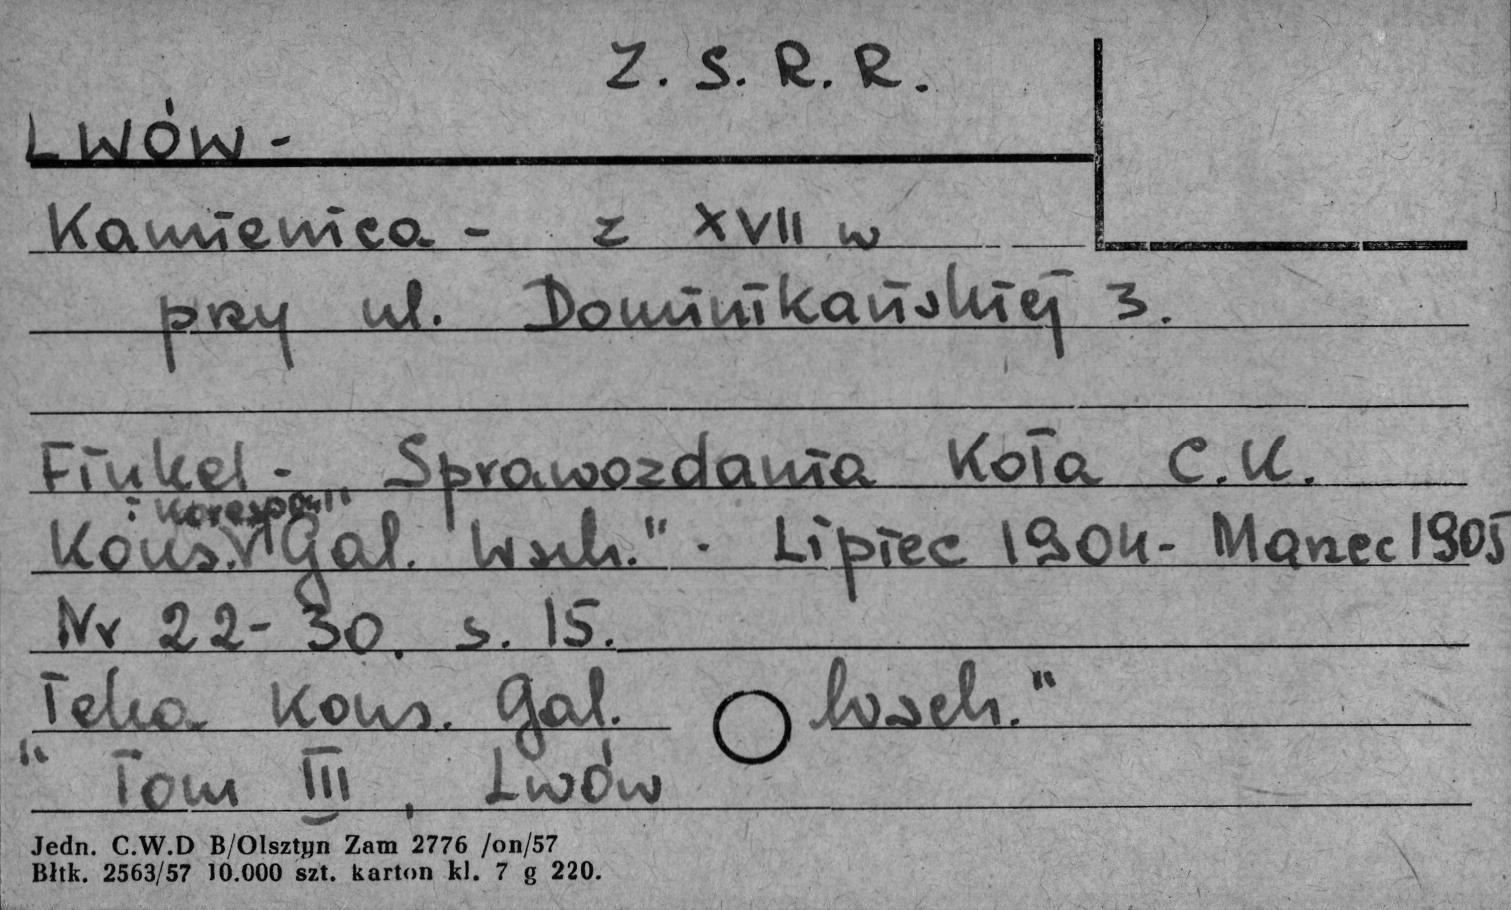 Z. S. R. R.
LWÓW -
Kamienica - z XVII w
przy ul. Dominikańskiej 3.
Finkel - Sprawozdania Koła C.K.
i Korespon"
Kons. Gal. Wsch." . Lipiec 1904 - Marzec 1905
Nr 22-30. s. 15.
Teka Kons. Gal. Wsch."
" Tom III, Lwów
Jedn. C.W.D B/Olsztyn Zam 2776 /on/57
Błtk. 2563/57 10.000 szt. karton kl. 7 g 220.